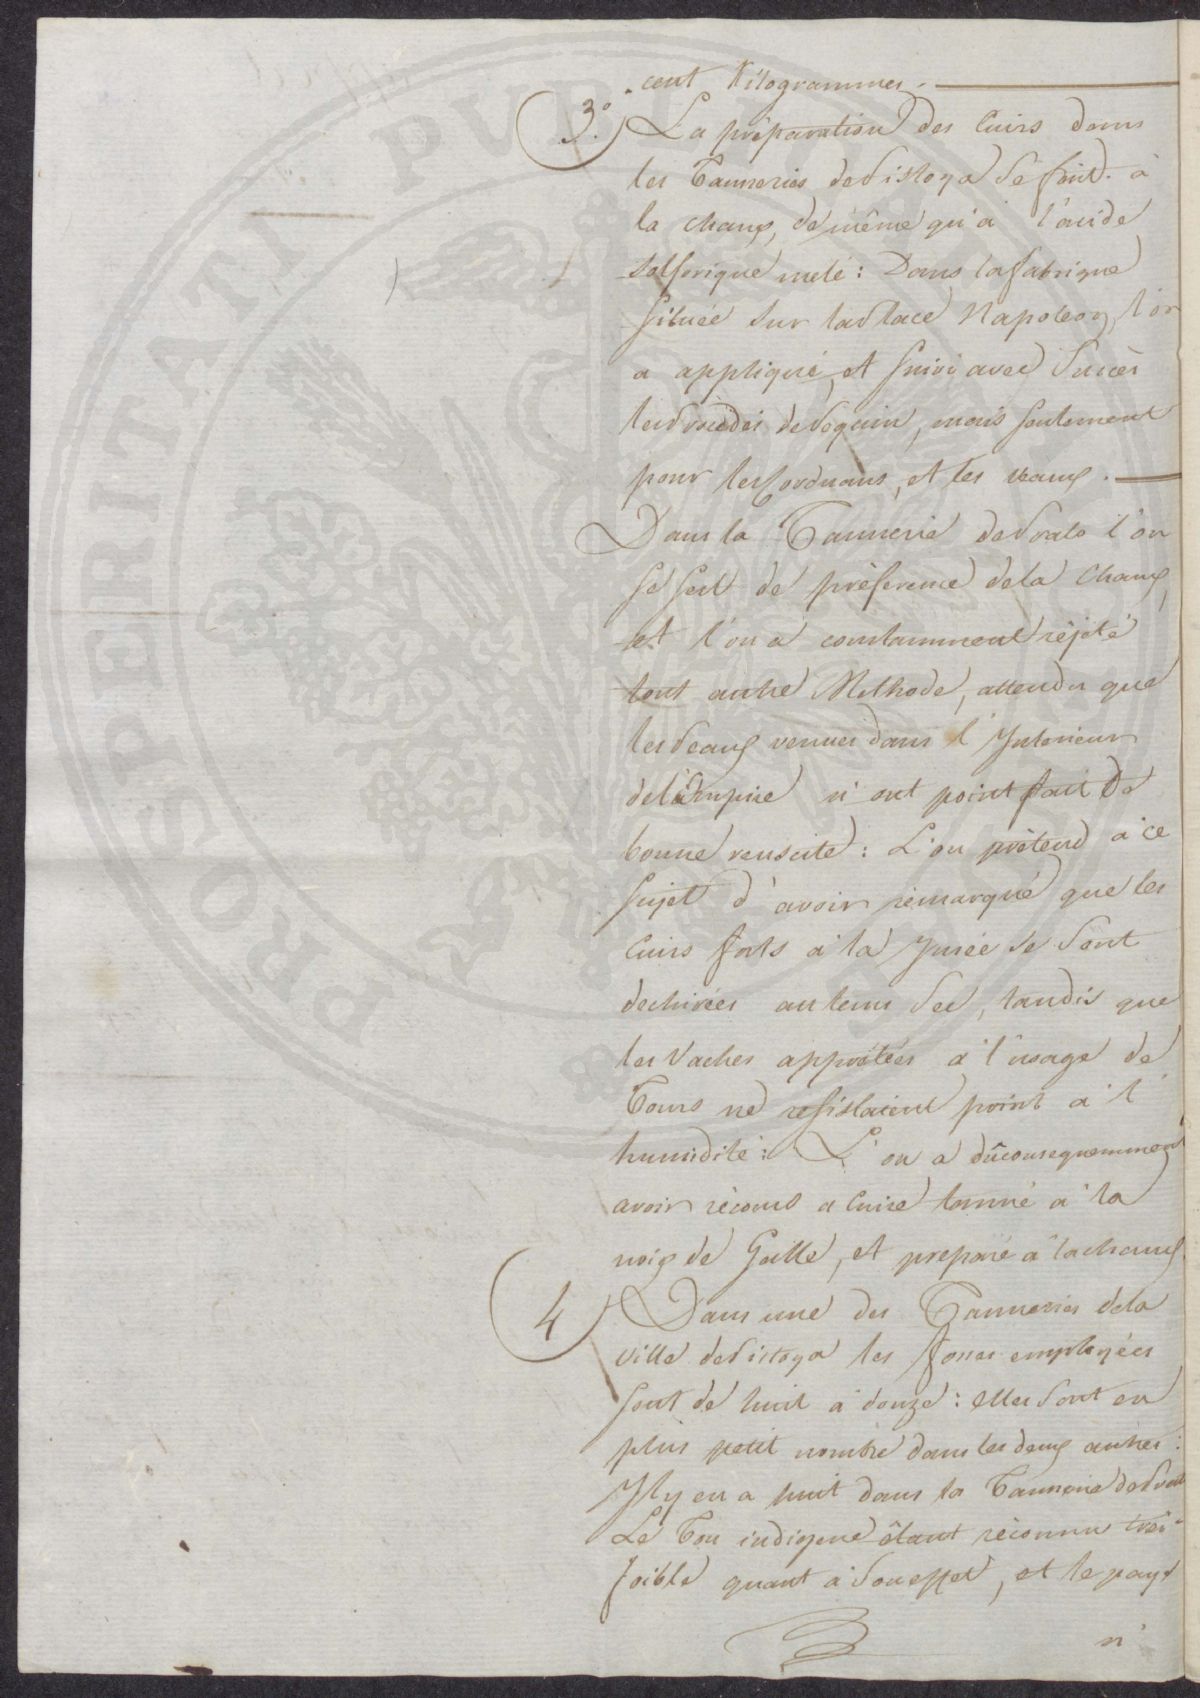 cent Kilogrammes.
3.° La préparation des Cuirs dans
les Tanneries de Pistoya se fait à
la chaux, de même qu'à l'acide
solforique melé : Dans la fabrique
située sur la Place Napoleon, l'on
a appliqué, et suivi avec succès
les Procèdés de Seguin, mais seulement
pour les Corduans, et les veaux.
Dans la Tannerie de Prato l'on
se sert de prèference de la Chaux,
et l'on a constamment rêjeté
tout autre Methode, attendu que
les Peaux venues dans l'Interieur
de l'Empire n'ont point fait de
bonne reuscite : L'on prètend à ce
sujet d'avoir rémarqué que les
Cuirs forts à la Jusée se sont
dechirées au tems sec, tandis que
les Vaches apprêtées à l'usage de
Tours ne resistaient point à l'
humidité : L'on a dû consequemment
avoir récours a Cuire tanné à la
noix de Galle, et preparé à la chaux
4 Dans une des Tanneries de la
Ville de Pistoya les fosses employées
sont de huit à douze : elles sont en
plus petit nombre dans les deux autres :
Il y en a huit dans la Tannerie de Prato
Le Tan indigene êtant rèconnu trés
foible quant à son effet, et le pays
n'
PROSPERITATI PUBLICAE